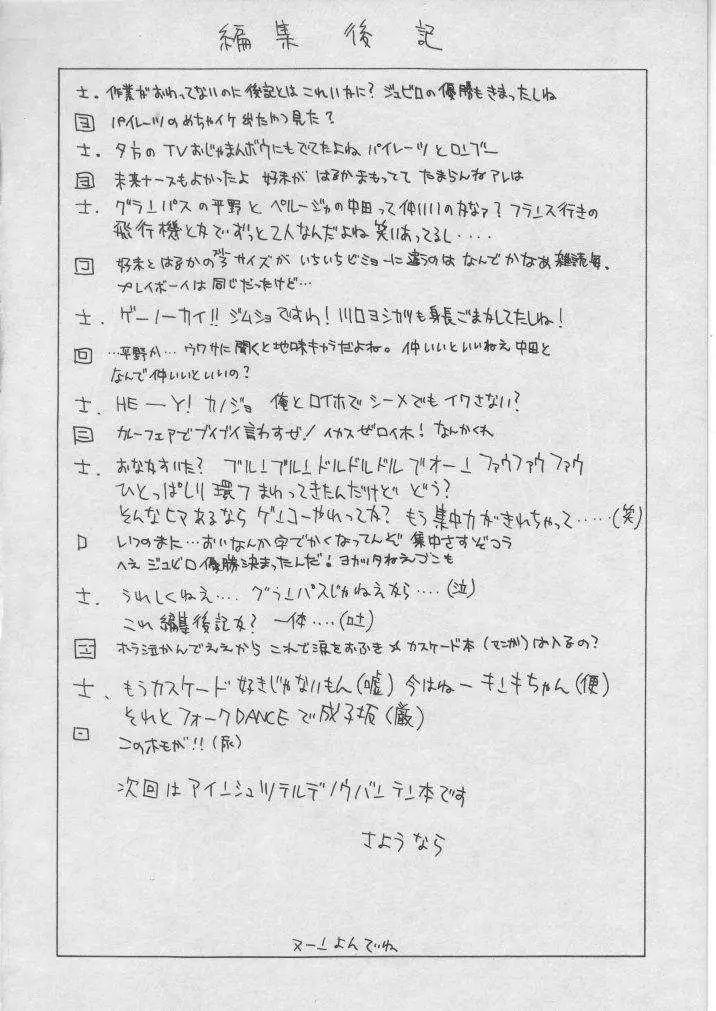 編集後記
士. 作業がおわってないのに後記とはこれいかに? ジュビロの優勝もきまったしね
ヨ パイレーツのめちゃイケ出たやつ見た?
士. 夕方のTVおじゃまんボウにもでてたよね パイレーツとローブー
ヨ 未来ナースもよかったよ 好未が はるかまもってて たまらんねアレは
士. グランパスの平野とペルージャの中田って仲いいのかなァ? フランス行きの
飛行機とかでずっと2人なんだよね 笑いあってるし・・・・
コ 好未とはるかのサイズがいちいちビミョーに違うのは なんでかなあ 雑誌毎.
プレイボーイは同じだったけど…
士. ゲーノーカイ!! ジムショですわ! 川口ヨシカツも身長ごまかしてたしね!
回 …平野か… ウワサに聞くと地味キャラだよね。 仲いいといいねえ 中田と
なんで仲いいといいの?
士. HE―Y! カノジョ 俺とロイホで シーメでも イワさない?
三 カレーフェアでブイブイ言わすぜ! イカスゼロイホ! なんかくれ
士. おなかすいた? ブルンブルンドルドルドルでオーン ファウファウファウ
ひとっぱしり 環7 まわってきたんだけど どう?
そんなヒマあるなら ゲンコーやれってか? もう集中力がきれちゃって……(笑)
ロ いつのまに…おいなんか字でかくなってんぞ 集中さすぞコラ
へえ ジュビロ優勝決まったんだ! ヨカッタねえごこも
士. うれしくねえ…. グランパスじゃねえなら….(泣)
これ編集後記か? 一体….(吐)
ホラ泣かんでええから これで涙をおふき メ カスケード本(マンガ)は入るの?
士. もうカスケード好きじゃないもん(嘘) 今はねーキンキちゃん(便)
それとフォークDANCEで成子坂(厳)
ロ このホモが!!(尿)
次回はアインシュツテルデノウバンテン本です
さようなら
ヌーンよんでね